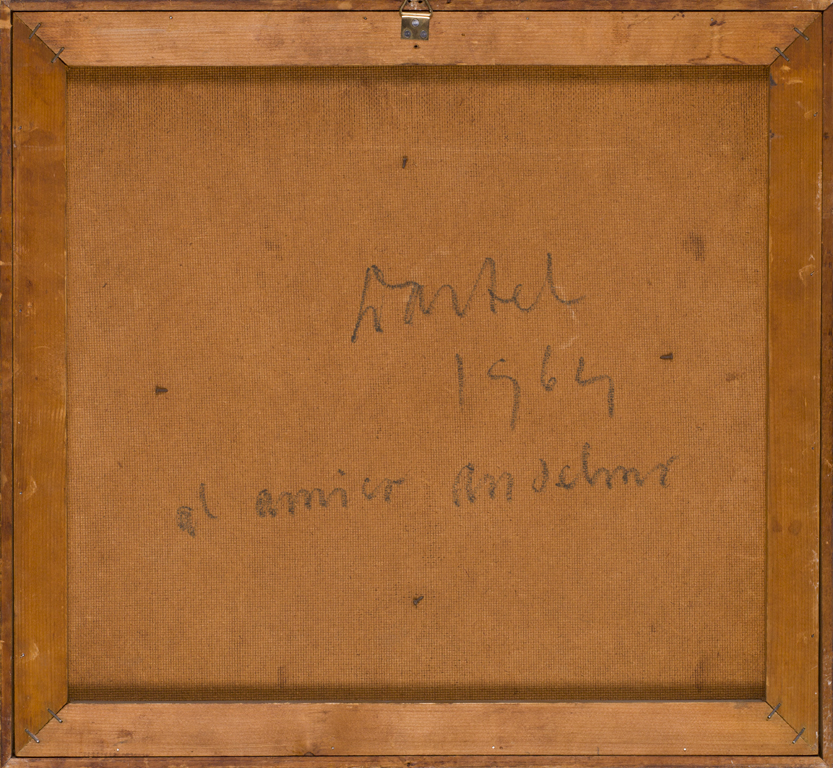 1964
al amico anselmo